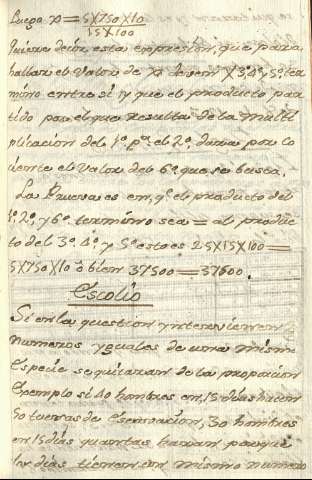 Luego x = 5X750X10
15X100
Quiere decir, esta expresion, que para
hallar el valor de x deven X 3º 4º y 5º ter
mino entre si y que el producto par
tido por el que resulta de la multi
plicacion del 1º pr el 2º dara por co
ciente el valor del 6º que se busca.
La Prueva es en, q.e el producto del
1º 2º, y 6º termino sea = al produc
to del 3º 4º y 5º esto es 25X15X100 =
5X750X10 ô bien 37500 = 37500.
Escolio
Si en la question yntervienen
numeros yguales de una misma
Especie se quitaran de la proporcion
Exemplo si 40 hombres en 15 dias hacen
tuevas de Escavacion, 30 hombres
en 15 dias quantas haran porque
los dias tienen un mismo numero